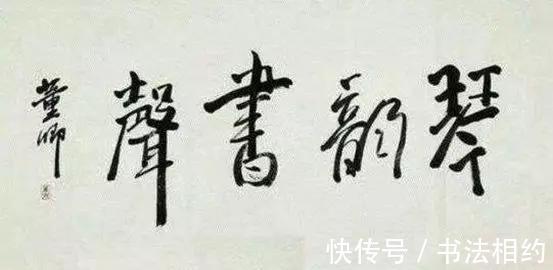 琴韵書聲
董卿
快传号 / 书法相约